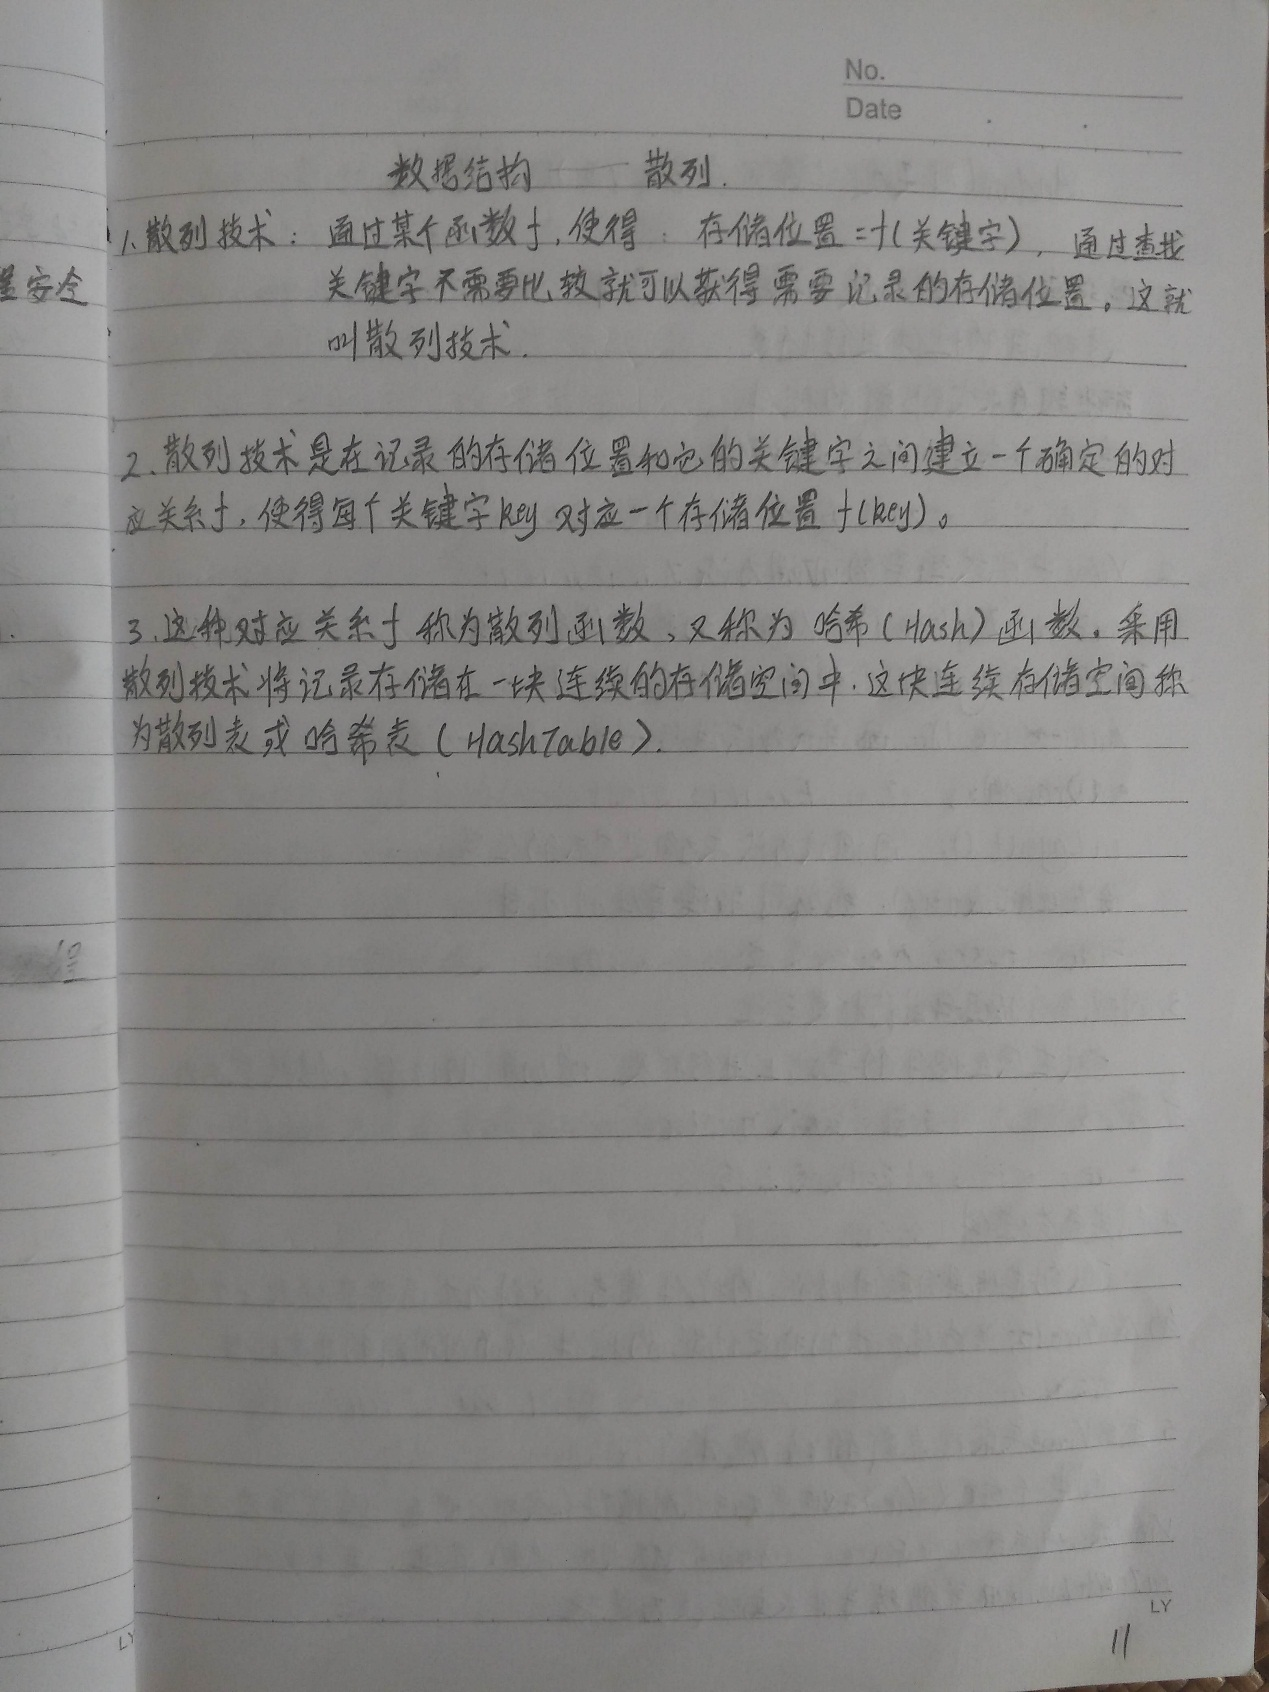 No.
Date
数据结构 —— 散列.
1. 散列技术: 通过某个函数f, 使得: 存储位置=f(关键字), 通过查找
关键字不需要比较就可以获得需要记录的存储位置。这就
叫散列技术.
2. 散列技术是在记录的存储位置和它的关键字之间建立一个确定的对
应关系f, 使得每个关键字key对应一个存储位置f(key)。
3. 这种对应关系f称为散列函数、又称为哈希(Hash)函数. 采用
散列技术将记录存储在一块连续的存储空间中. 这块连续存储空间称
为散列表或哈希表(HashTable).
安全
LY
LY
11